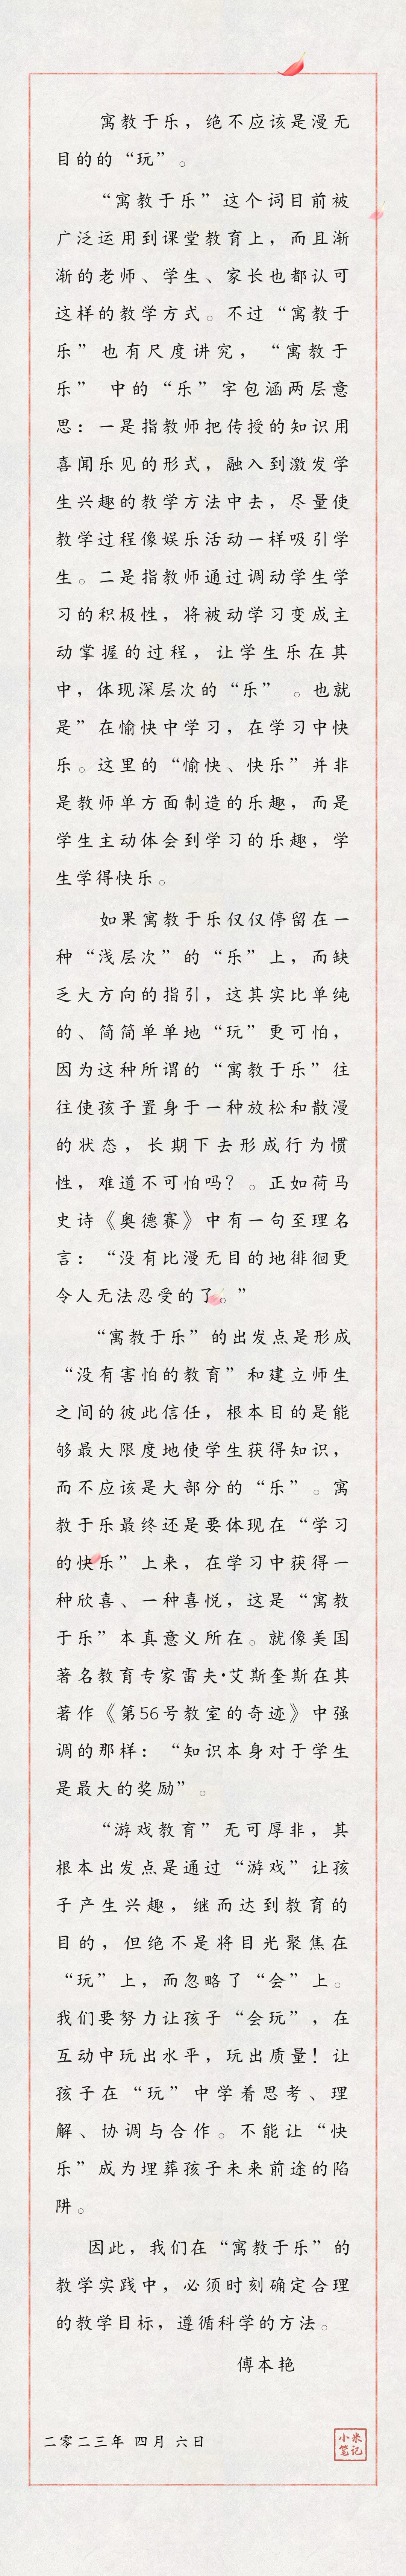 寓教于乐，绝不应该是漫无
目的的“玩”。
“寓教于乐”这个词目前被
广泛运用到课堂教育上，而且渐
渐的老师、学生、家长也都认可
这样的教学方式。不过“寓教于
乐”也有尺度讲究，“寓教于
乐” 中的“乐”字包涵两层意
思：一是指教师把传授的知识用
喜闻乐见的形式，融入到激发学
生兴趣的教学方法中去，尽量使
教学过程像娱乐活动一样吸引学
生。二是指教师通过调动学生学
习的积极性，将被动学习变成主
动掌握的过程，让学生乐在其
中，体现深层次的“乐” 。也就
是”在愉快中学习，在学习中快
乐。这里的“愉快、快乐”并非
是教师单方面制造的乐趣，而是
学生主动体会到学习的乐趣，学
生学得快乐。
如果寓教于乐仅仅停留在一
种“浅层次”的“乐”上，而缺
乏大方向的指引，这其实比单纯
的、简简单单地“玩”更可怕，
因为这种所谓的“寓教于乐”往
往使孩子置身于一种放松和散漫
的状态，长期下去形成行为惯
性，难道不可怕吗？。正如荷马
史诗《奥德赛》中有一句至理名
言：“没有比漫无目的地徘徊更
令人无法忍受的了。”
“寓教于乐”的出发点是形成
“没有害怕的教育”和建立师生
之间的彼此信任，根本目的是能
够最大限度地使学生获得知识，
而不应该是大部分的“乐”。寓
教于乐最终还是要体现在“学习
的快乐”上来，在学习中获得一
种欣喜、一种喜悦，这是“寓教
于乐”本真意义所在。就像美国
著名教育专家雷夫·艾斯奎斯在其
著作《第56号教室的奇迹》中强
调的那样：“知识本身对于学生
是最大的奖励”。
“游戏教育”无可厚非，其
根本出发点是通过“游戏”让孩
子产生兴趣，继而达到教育的
目的，但绝不是将目光聚焦在
“玩”上，而忽略了“会”上。
我们要努力让孩子“会玩”，在
互动中玩出水平，玩出质量！让
孩子在“玩”中学着思考、理
解、协调与合作。不能让“快
乐”成为埋葬孩子未来前途的陷
阱。
因此，我们在“寓教于乐”的
教学实践中，必须时刻确定合理
的教学目标，遵循科学的方法。
傅本艳
二零二三年 四月 六日
小米
笔记